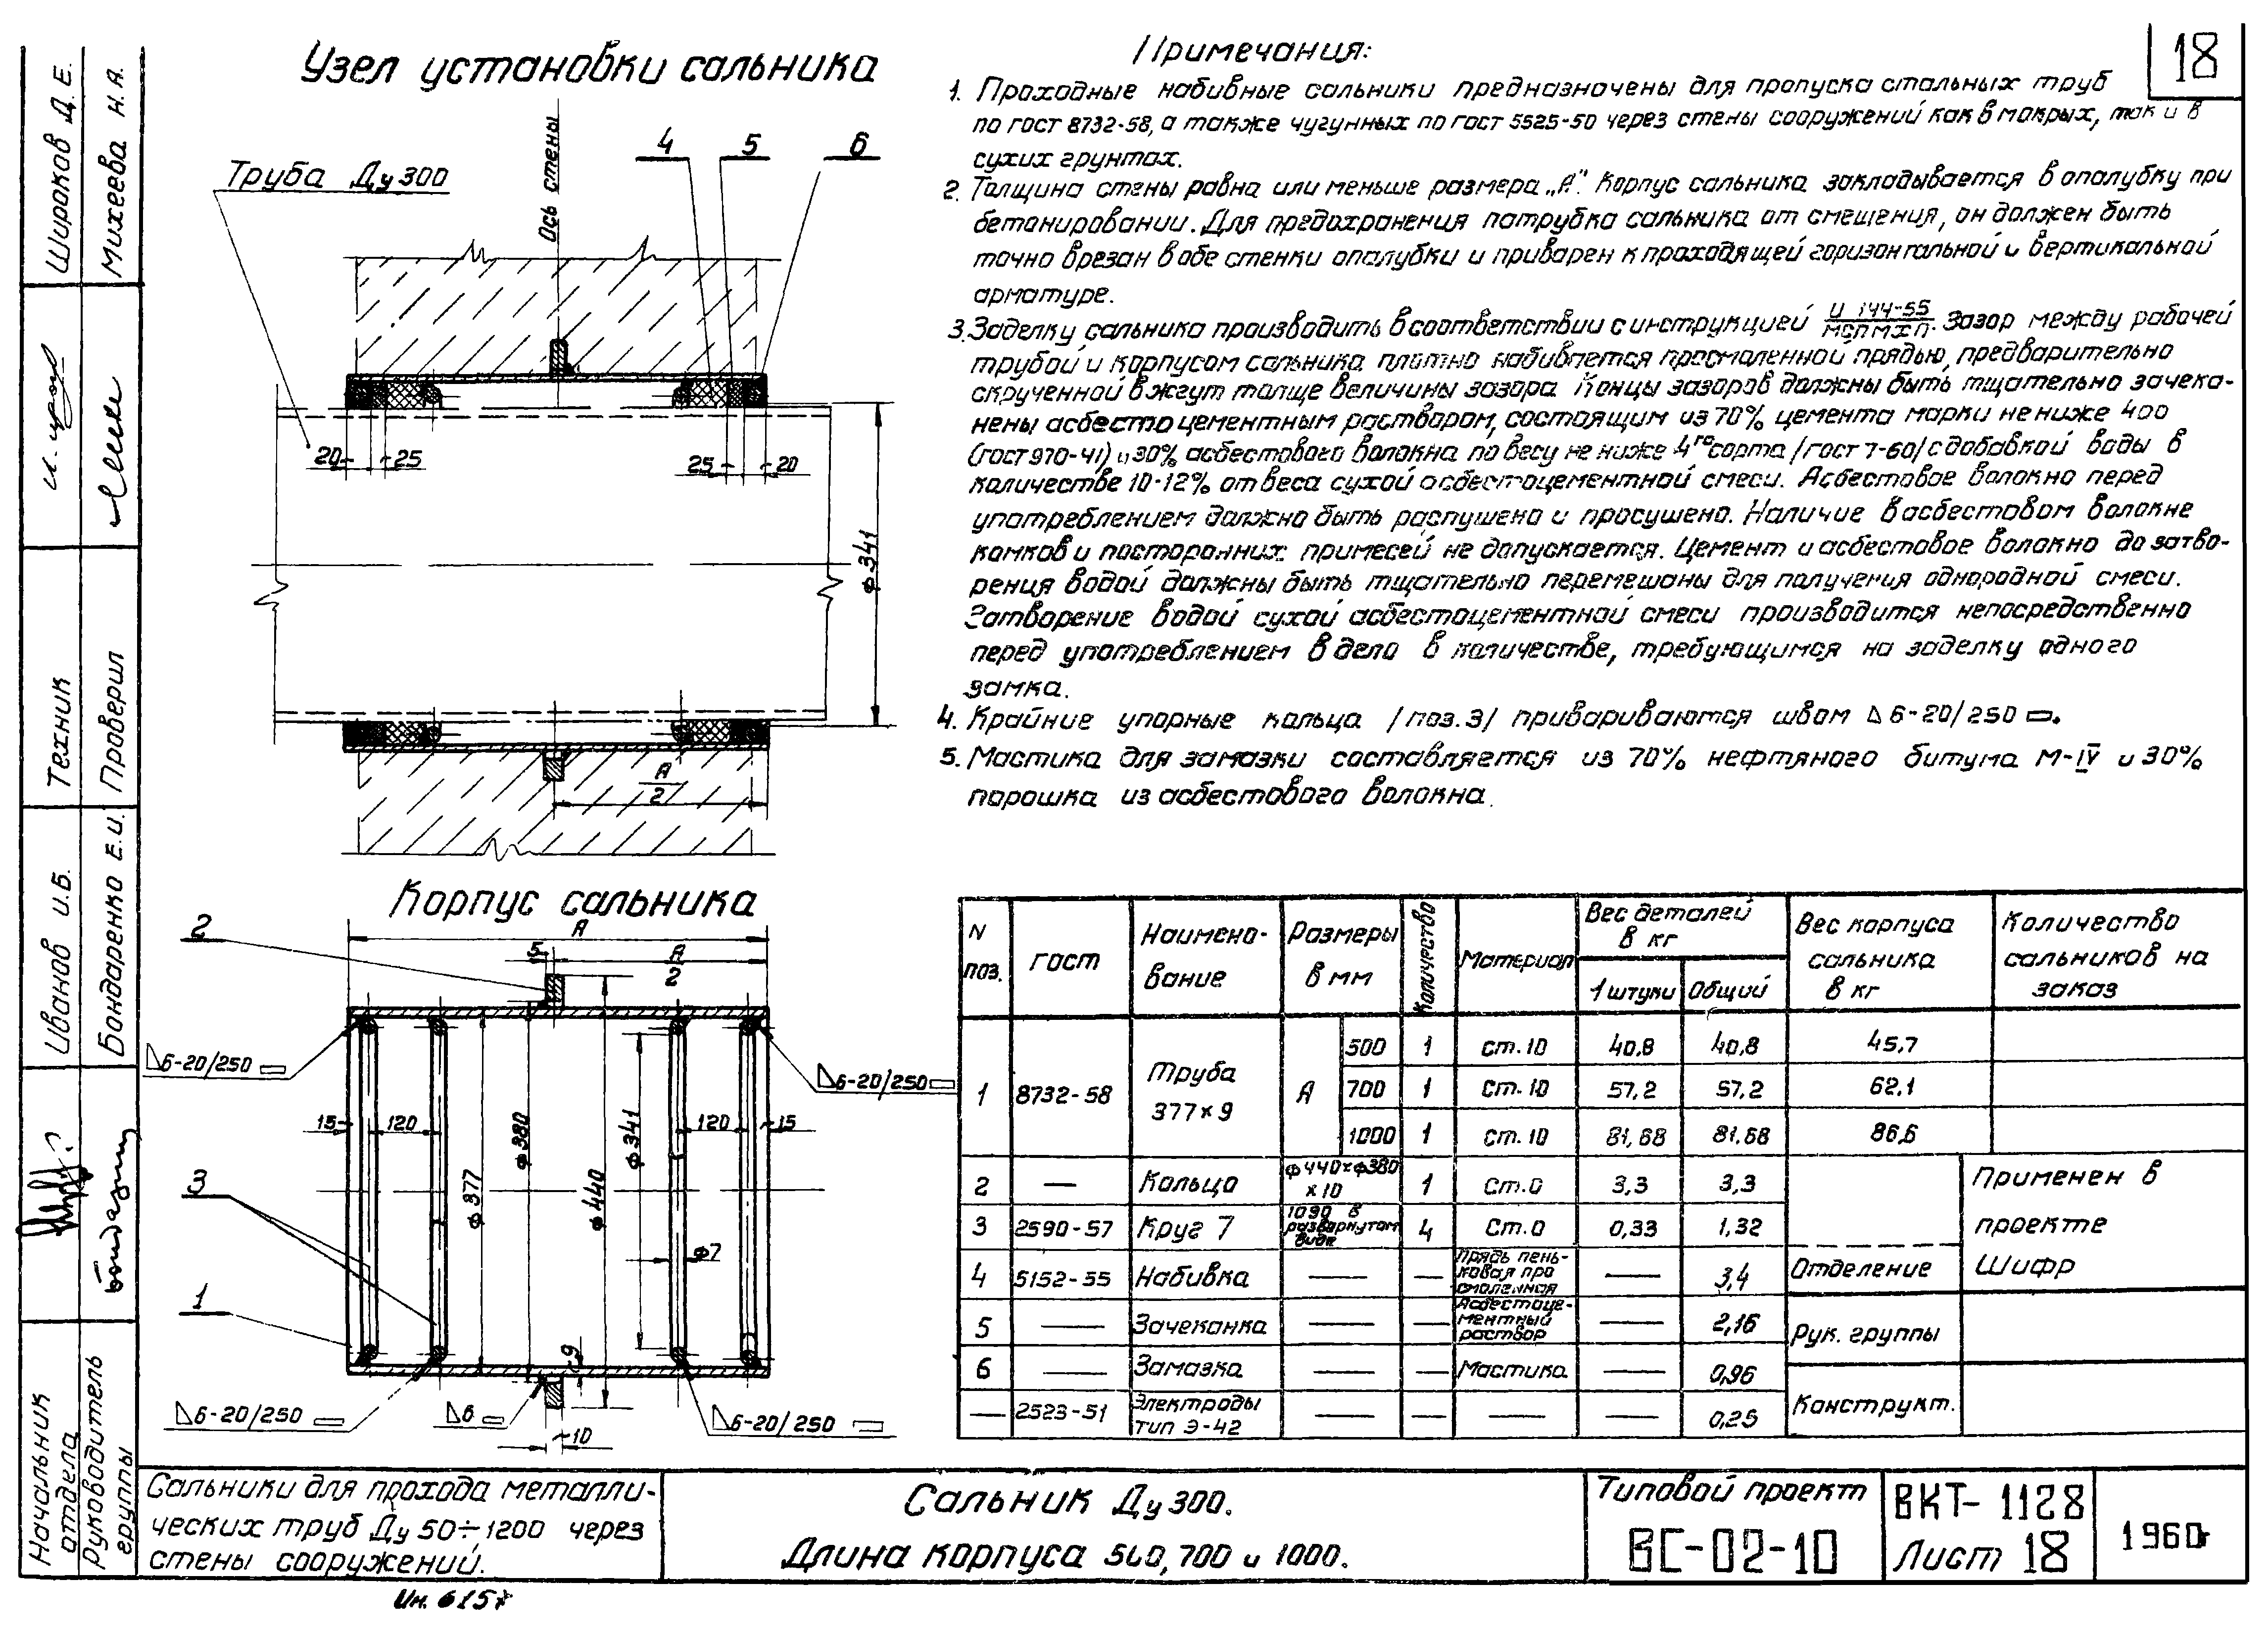 18
Узел установки сальника
Труба Ду 300
Ось стены
4 5 6
20 25 25 20
ф341
А
2
Корпус сальника
А
5 А
2
2
△6-20/250
△6-20/250
15 120 120 15
ф380
ф377
ф341
ф440
ф7
3
1
9
△6-20/250
△6
△6-20/250
~10
Примечания:
1. Проходные набивные сальники предназначены для пропуска стальных труб
по гост 8732-58, а также чугунных по гост 5525-50 через стены сооружений как в мокрых, так и в
сухих грунтах.
2. Толщина стены равна или меньше размера „А". Корпус сальника закладывается в опалубку при
бетонировании. Для предохранения патрубка сальника от смещения, он должен быть
точно врезан в обе стенки опалубки и приварен к проходящей горизонтальной и вертикальной
арматуре.
3. Заделку сальника производить в соответствии с инструкцией И 144-55 / МСПМХП. Зазор между рабочей
трубой и корпусом сальника плотно набивается просмоленной прядью, предварительно
скрученной в жгут толще величины зазора. Концы зазоров должны быть тщательно зачека-
нены асбестоцементным раствором, состоящим из 70% цемента марки не ниже 400
(гост 970-41) и 30% асбестового волокна по весу не ниже 4го сорта /гост 7-60/ с добавкой воды в
количестве 10-12% от веса сухой асбестоцементной смеси. Асбестовое волокно перед
употреблением должно быть распушено и просушено. Наличие в асбестовом волокне
комков и посторонних примесей не допускается. Цемент и асбестовое волокно до затво-
рения водой должны быть тщательно перемешаны для получения однородной смеси.
Затворение водой сухой асбестоцементной смеси производится непосредственно
перед употреблением в дело в количестве, требующимся на заделку одного
замка.
4. Крайние упорные кольца /поз. 3/ привариваются швом △6-20/250 ▭.
5. Мастика для замазки составляется из 70% нефтяного битума М-IV и 30%
порошка из асбестового волокна.
N поз. гост Наимено-вание Размеры в мм Количество Материал Вес деталей в кг 1 штуки Общий Вес корпуса сальника в кг Количество сальников на заказ
1 8732-58 Труба 377×9 А 500 1 ст. 10 40,8 40,8 45,7
700 1 Ст. 10 57,2 57,2 62,1
1000 1 Ст. 10 81,68 81,68 86,6
2 — Кольцо ф440×ф380 ×10 1 Ст.0 3,3 3,3
3 2590-57 Круг 7 1090 в развернутом виде 4 Ст.0 0,33 1,32
4 5152-55 Набивка — — Прядь пень-ковая просмоленная — 3,4
5 — Зачеканка — — Асбестоце-ментный раствор — 2,16
6 — Замазка — — Мастика — 0,96
— 2523-51 Электроды тип Э-42 — — — — 0,25
Применен в
проекте
Шифр
Отделение
Рук. группы
Конструкт.
Сальники для прохода металли-
ческих труб Ду 50÷1200 через
стены сооружений.
Сальник Ду 300.
Длина корпуса 500, 700 и 1000.
Типовой проект
ВС-02-10
ВКТ-1128
Лист 18
1960г
Ин. 6157
Начальник отдела
Иванов И.Б.
Руководитель группы
Бондаренко Е.И.
Техник
Широков Д.Е.
Проверил
Михеева Н.А.